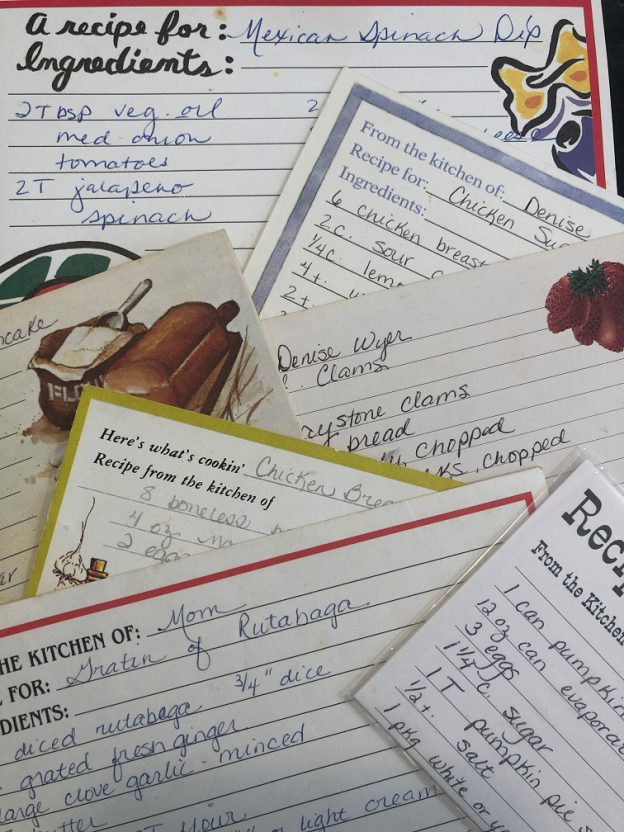 A recipe for: Mexican Spinach Dip
Ingredients:
2 Tbsp veg. oil 2
med. onion
tomatoes
2 T jalapeno
spinach
From the kitchen of: Denise
Recipe for: Chicken
Ingredients:
6 chicken breast
2 c. sour
1/4 c. lem
4 t.
2 t.
cake
FLOU
Denise Wyer
Clams
rystone clams
bread
chopped
ks, chopped
Here's what's cookin' Chicken Bre
Recipe from the kitchen of
8 boneless
4 oz
2 eggs
HE KITCHEN OF: Mom
FOR: Gratin of Rutabaga
DIENTS: 3/4" dice
diced rutabaga
grated fresh ginger
large clove garlic - minced
butter
flour
or light cream
Recip
From the Kitchen
1 can pumpkin
12 oz can evapora
3 eggs
1 1/4 c. sugar
1 T pumpkin pie
1/2 t. salt
1 pkg white or